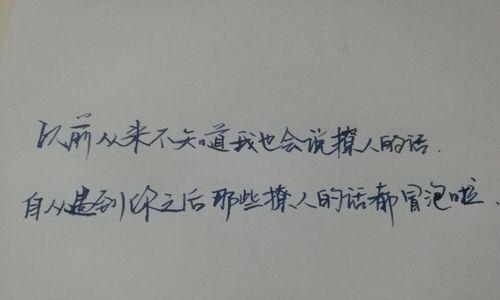 以前从来不知道我也会说撩人的话.
自从遇到你之后那些撩人的话都冒泡啦.